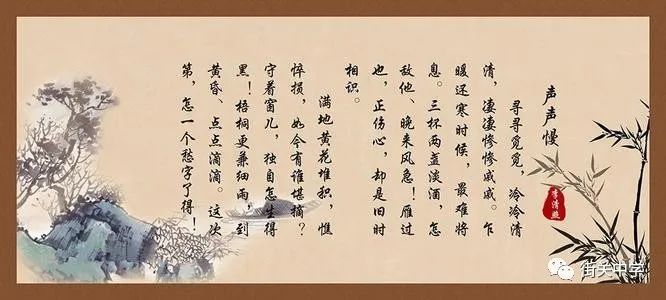 声声慢
寻寻觅觅，冷冷清
清，凄凄惨惨戚戚。乍
暖还寒时候，最难将
息。三杯两盏淡酒，怎
敌他、晚来风急！雁过
也，正伤心，却是旧时
相识。
满地黄花堆积，憔
悴损，如今有谁堪摘？
守着窗儿，独自怎生得
黑！梧桐更兼细雨，到
黄昏、点点滴滴。这次
第，怎一个愁字了得！
李清照
街关中学